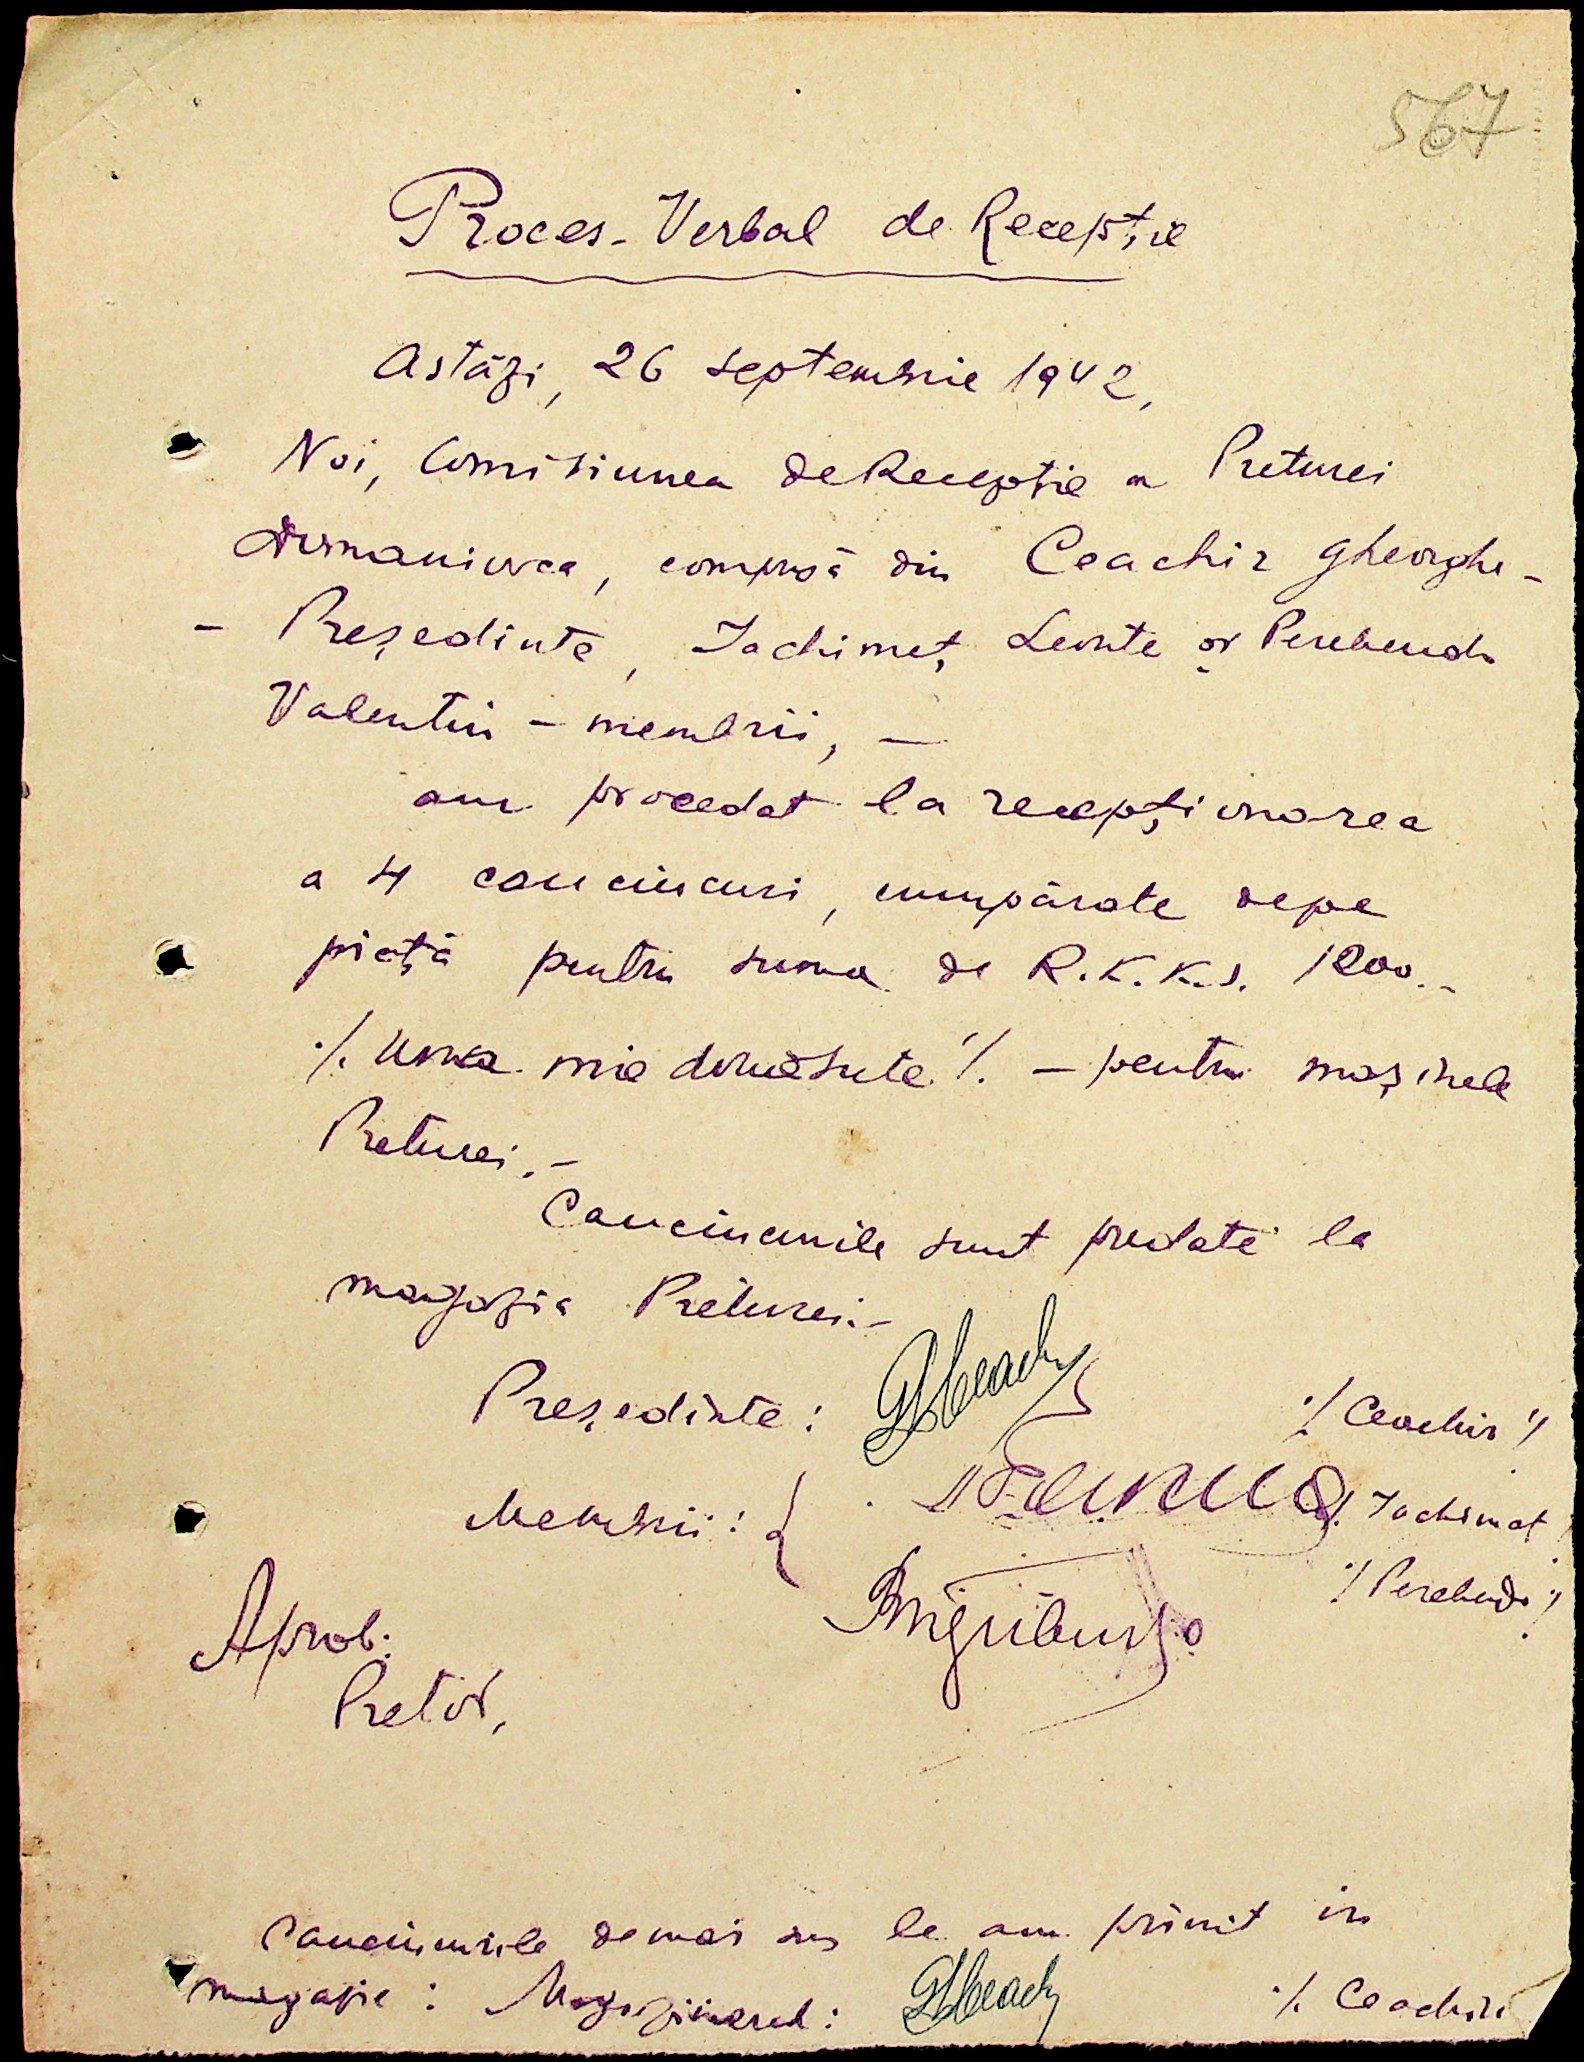 567
Proces-Verbal de Recepție
Astăzi, 26 septembrie 1942,
Noi, Comisiunea de Recepție a Preturei
Domaniovca, compusă din Ceachir Gheorghe -
- Președinte, Iachimeț Leonte și Perebenda
Valentin - membrii, -
am procedat la recepționarea
a 4 cauciucuri, cumpărate depe
piață pentru suma de R.K.K.S. 1200.-
./. Una mie douăsute ./. - pentru mașinele
Preturei.-
Cauciucurile sunt predate la
magazia Preturei.-
Președinte: ./. Ceachir ./.
Membrii: { ./. Iachimeț
./. Perebenda ./.
Aprob.
Pretor,
Cauciucurile demai sus le am primit in
magazie: Magazinerul: ./. Ceachir